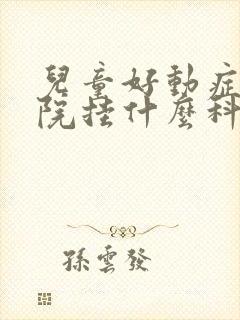 兒童好動症
院挂什麼科
孫雲發